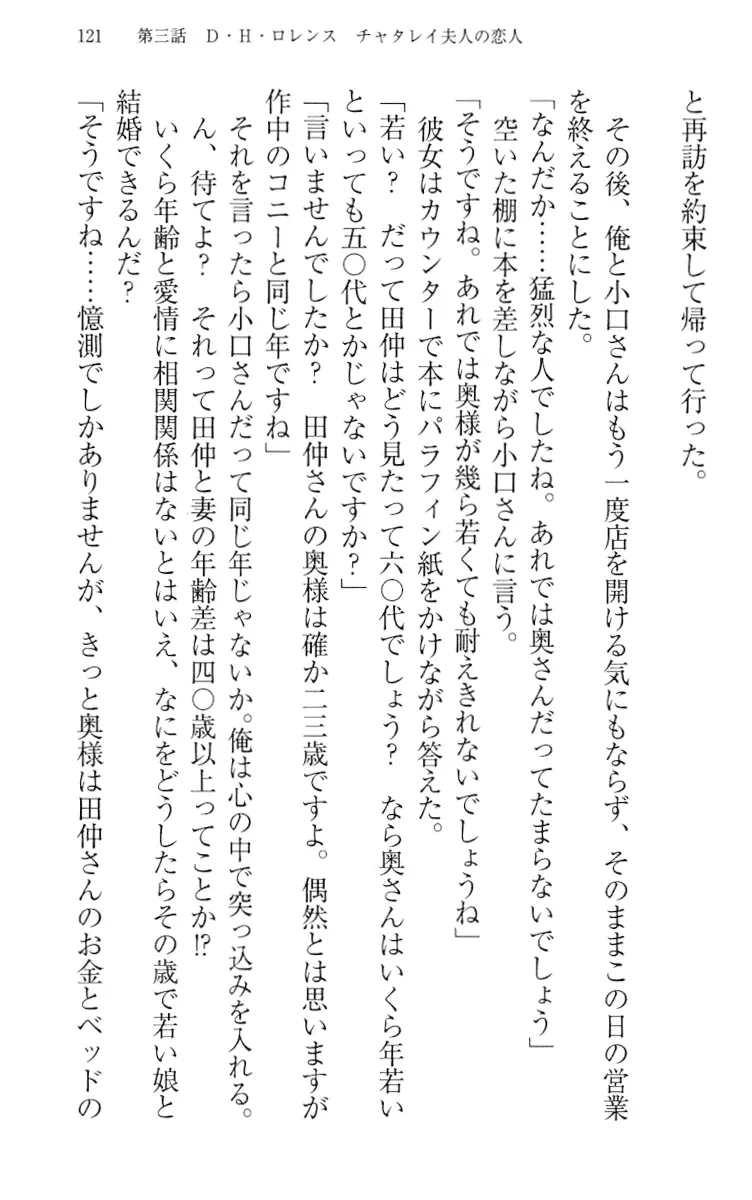 121　第三話　D・H・ロレンス　チャタレイ夫人の恋人
と再訪を約束して帰って行った。
その後、俺と小口さんはもう一度店を開ける気にもならず、そのままこの日の営業
を終えることにした。
「なんだか……猛烈な人でしたね。あれでは奥さんだってたまらないでしょう」
空いた棚に本を差しながら小口さんに言う。
「そうですね。あれでは奥様が幾ら若くても耐えきれないでしょうね」
彼女はカウンターで本にパラフィン紙をかけながら答えた。
「若い？　だって田仲はどう見たって六〇代でしょう？　なら奥さんはいくら年若い
といっても五〇代とかじゃないですか？」
「言いませんでしたか？　田仲さんの奥様は確か二三歳ですよ。偶然とは思いますが
作中のコニーと同じ年ですね」
それを言ったら小口さんだって同じ年じゃないか。俺は心の中で突っ込みを入れる。
ん、待てよ？　それって田仲と妻の年齢差は四〇歳以上ってことか!?
いくら年齢と愛情に相関関係はないとはいえ、なにをどうしたらその歳で若い娘と
結婚できるんだ？
「そうですね……憶測でしかありませんが、きっと奥様は田仲さんのお金とベッドの